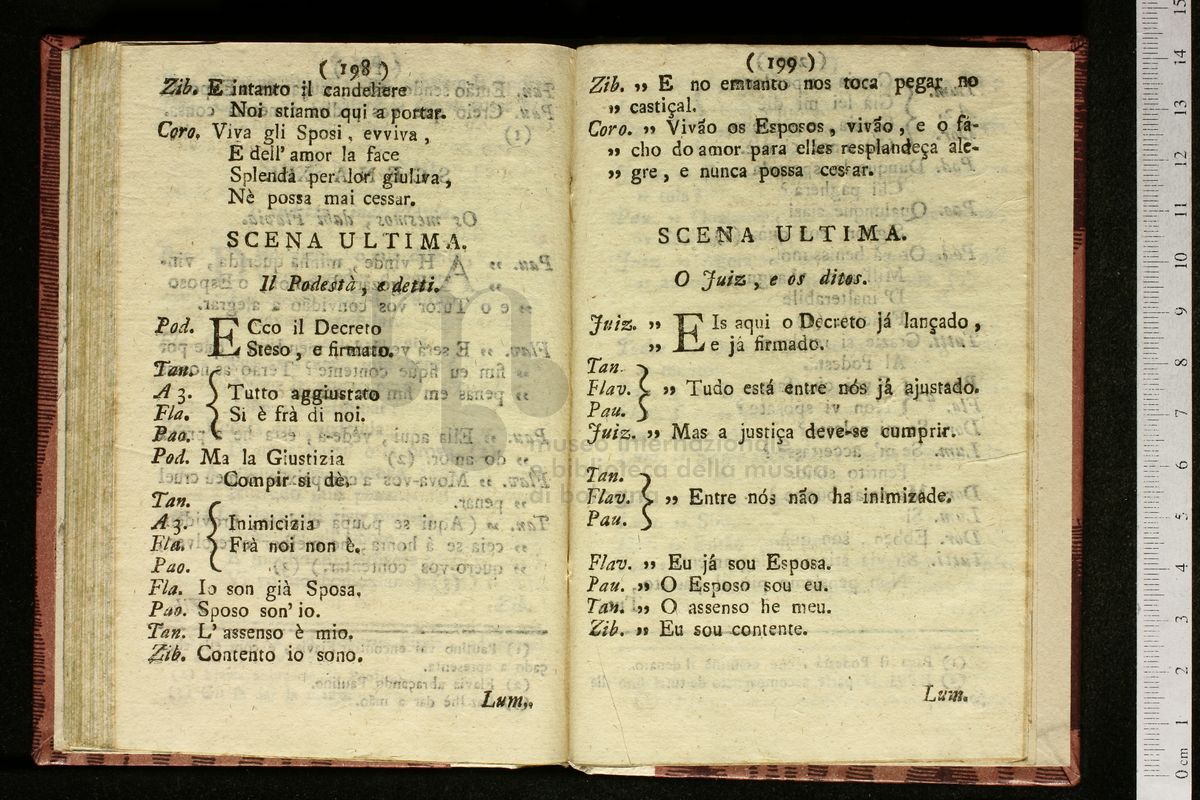 ( 198 )
Zib. E intanto il candeliere
Noi stiamo qui a portar.
Coro. Viva gli Sposi, evviva,
E dell' amor la face
Splenda per lor giuliva,
Nè possa mai cessar.
SCENA ULTIMA.
Il Podestà, e detti.
Pod. ECco il Decreto
Steso, e firmato.
Tan.
A 3. Tutto aggiustato
Fla. Si è frà di noi.
Pao.
Pod. Ma la Giustizia
Compir si dè.
Tan.
A 3. Inimicizia
Fla. Frà noi non è.
Pao.
Fla. Io son già Sposa.
Pao. Sposo son' io.
Tan. L' assenso è mio.
Zib. Contento io sono.
Lum,,
( 199 )
Zib. „ E no emtanto nos toca pegar no
„ castiçal.
Coro. „ Vivão os Esposos, vivão, e o fa-
„ cho do amor para elles resplandeça ale-
„ gre, e nunca possa cessar.
SCENA ULTIMA.
O Juiz, e os ditos.
Juiz. „ EIs aqui o Decreto já lançado,
„ e já firmado.
Tan.
Flav. „ Tudo está entre nós já ajustado.
Pau.
Juiz. „ Mas a justiça deve-se cumprir.
Tan.
Flav. „ Entre nós não ha inimizade.
Pau.
Flav. „ Eu já sou Esposa.
Pau. „ O Esposo sou eu.
Tan. „ O assenso he meu.
Zib. „ Eu sou contente.
Lum.
museo internazionale
e biblioteca della musica
di bologna
0 cm 1 2 3 4 5 6 7 8 9 10 11 12 13 14 15